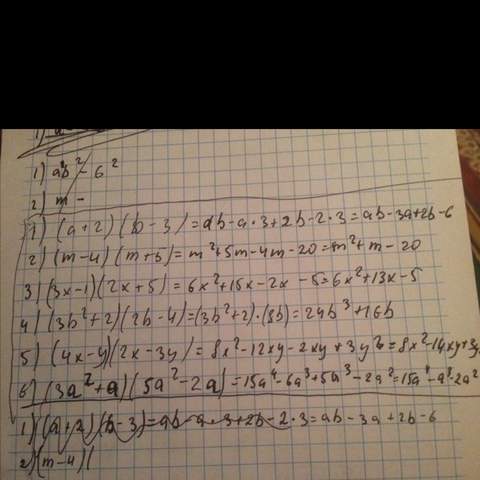 1) a²b² - 6²
2) m -
1) (a+2)(b-3)=ab-a·3+2b-2·3=ab-3a+2b-6
2) (m-4)(m+5)=m²+5m-4m-20=m²+m-20
3) (3x-1)(2x+5)=6x²+15x-2x-5=6x²+13x-5
4) (3b²+2)(2b-4)=(3b²+2)·(8b)=24b³+16b
5) (4x-y)(2x-3y)=8x²-12xy-2xy+3y²=8x²-14xy+3y
6) (3a²+a)(5a²-2a)=15a⁴-6a³+5a³-2a²=15a⁴-a³-2a²
1) (a+2)(b-3)=ab-a·3+2b-2·3=ab-3a+2b-6
2) (m-4)(